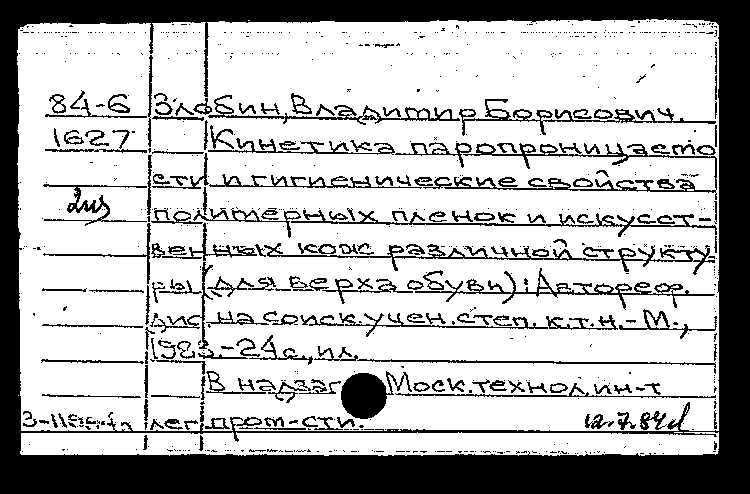 84-6 Злобин, Владимир Борисович.
1627 Кинетика паропроницаемо
сти и гигиенические свойства
2из полимерных пленок и искусст-
венных кож различной структу-
ры (для верха обуви): Автореф.
дис. на соиск. учен. степ. к.т.н. - М.,
1983. - 24 с., ил.
В надзаг Моск. технол. ин-т
лег. пром-сти. 12.7.84